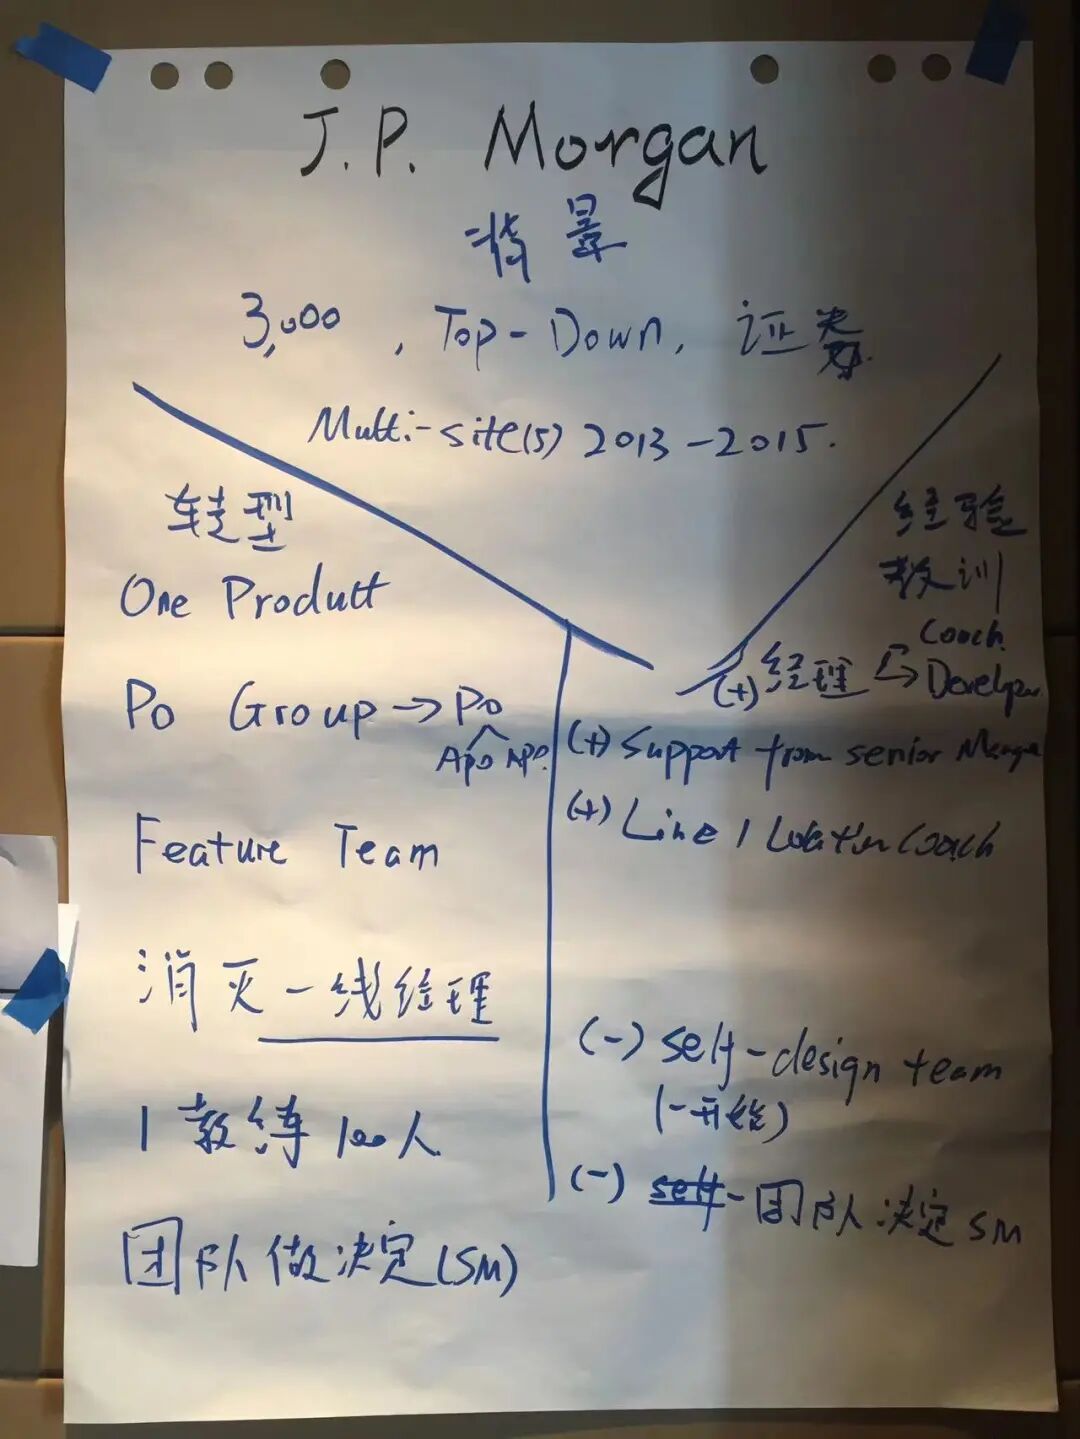 J.P. Morgan
背景
3,000, Top-Down, 证券
Multi-site(5) 2013-2015.
转型
One Product
Po Group → Po
Apo Apo
Feature Team
消灭一线经理
1 教练 100人
团队做决定(SM)
经验
教训
(+) 经理 → Coach
Developer
(+) Support from senior
(+) Line / Coach
(-) self-design team
(一开始)
(-) self-团队决定SM